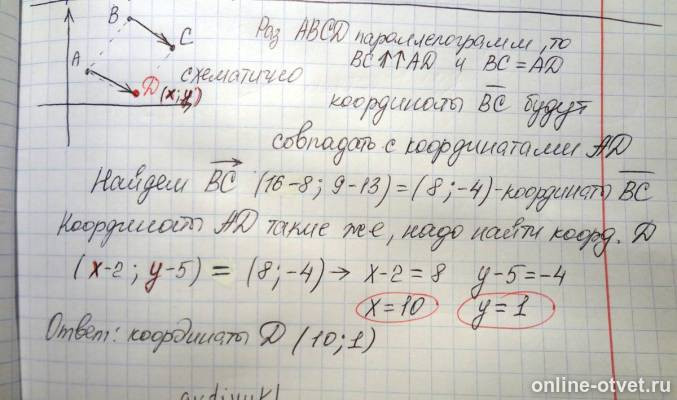 B
C
A
D
(x; y)
схематично
Раз ABCD параллелограмм, то
BC↑↑AD и BC = AD
координаты BC будут
совпадать с координатами AD
Найдем BC (16-8; 9-13) = (8; -4) - координаты BC
Координаты AD такие же, надо найти коорд. D
(x-2; y-5) = (8; -4) → x-2=8 y-5=-4
x=10 y=1
Ответ: координаты D (10; 1)
online-otvet.ru